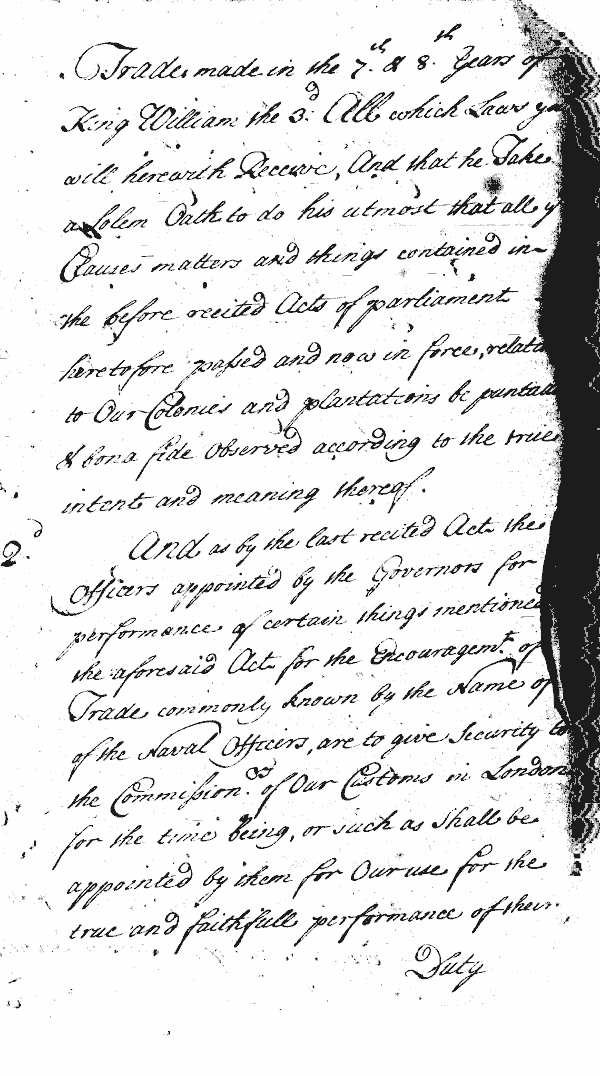 Trade, made in the 7.th & 8.th Years of
King William the 3.d All which Laws
will herewith Receive, And that he Take
a Solem Oath to do his utmost that all y
Clauses matters and things contained in
the before recited Acts of parliament
heretofore passed and now in force, relat
to Our Colonies and plantations be punctua
& bona fide Observed according to the true
intent and meaning thereof.
2.d And as by the last recited Act the
Officers appointed by the Governors for
performance of certain things mentioned
the aforesaid Act for the Encouragemt. of
Trade commonly known by the Name of
of the Naval Officers, are to give Security to
the Commission.rs of Our Customs in London
for the time being, or such as Shall be
appointed by them for Our use for the
true and faithfull performance of their
Duty